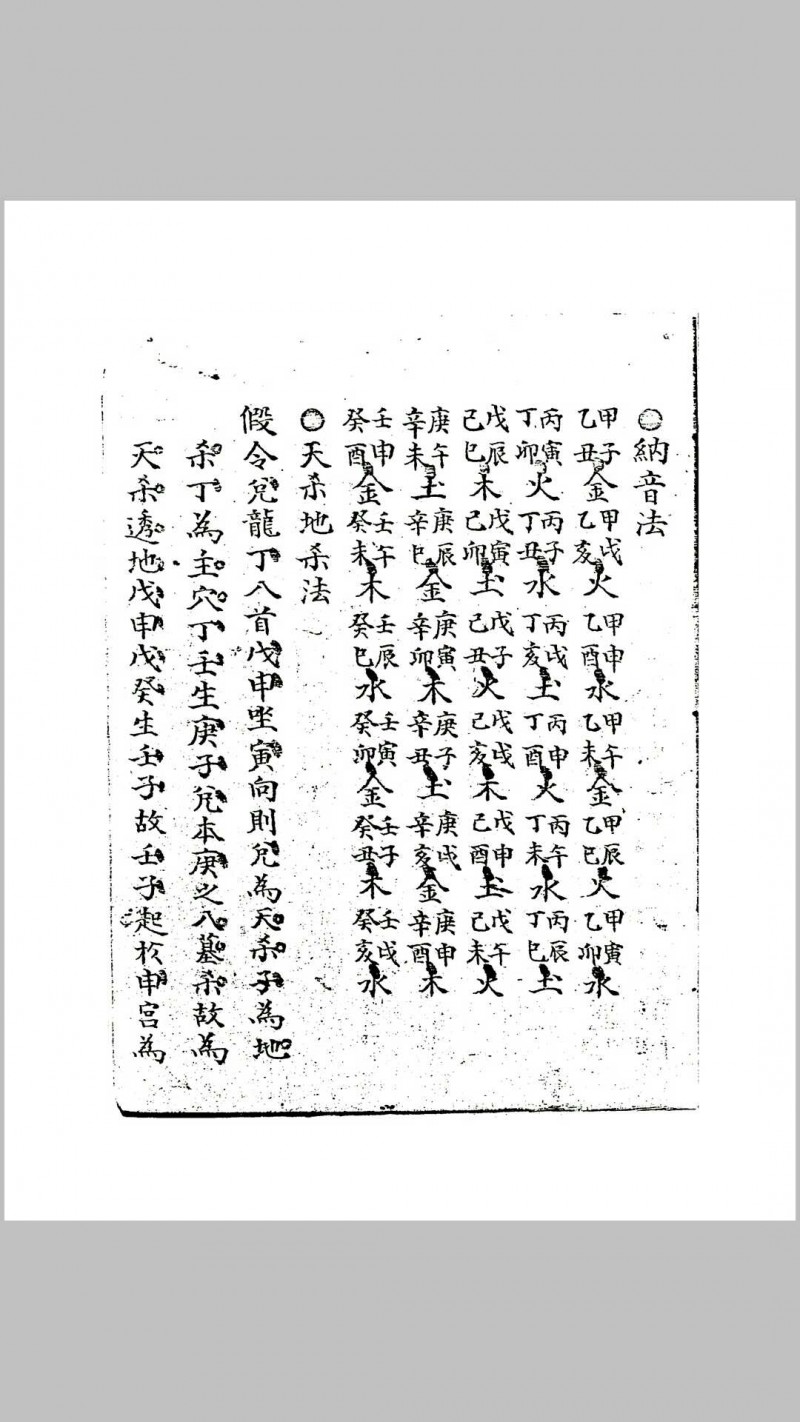 ○納音法
甲子乙丑金甲戌乙亥火甲申乙酉水甲午乙未金甲辰乙巳火甲寅乙卯水
丙寅丁卯火丙子丁丑水丙戌丁亥土丙申丁酉火丙午丁未水丙辰丁巳土
戊辰己巳木戊寅己卯土戊子己丑火戊戌己亥木戊申己酉土戊午己未火
庚午辛未土庚辰辛巳金庚寅辛卯木庚子辛丑土庚戌辛亥金庚申辛酉木
壬申癸酉金壬午癸未木壬辰癸巳水壬寅癸卯金壬子癸丑木壬戌癸亥水
○天杀地杀法
假令兌龍丁入首戊申坐寅向則兌為天杀子為地
杀丁為主穴丁壬生庚子兌本庚之入墓杀故為
天杀透地戊申戊癸生壬子故壬子起於申宮為